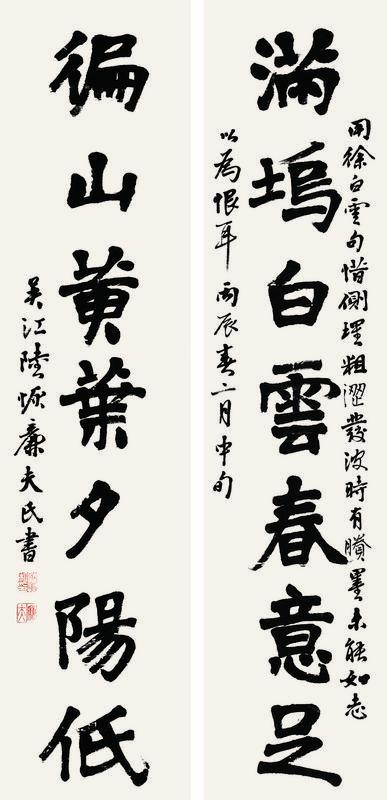 用徐白雲句惜側理粗澀發波時有賸墨未能如志
滿塢白雲春意足
以為恨耳丙辰春二月中旬
徧山黃葉夕陽低
吳江陸恢廉夫氏書